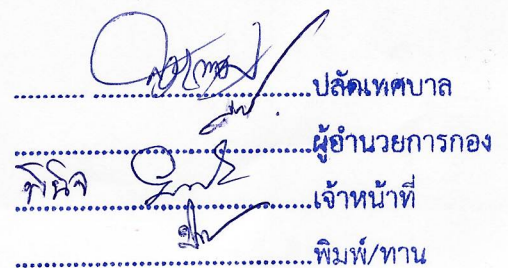 ปลัดเทศบาล
ผู้อำนวยการกอง
พินิจ เจ้าหน้าที่
พิมพ์/ทาน